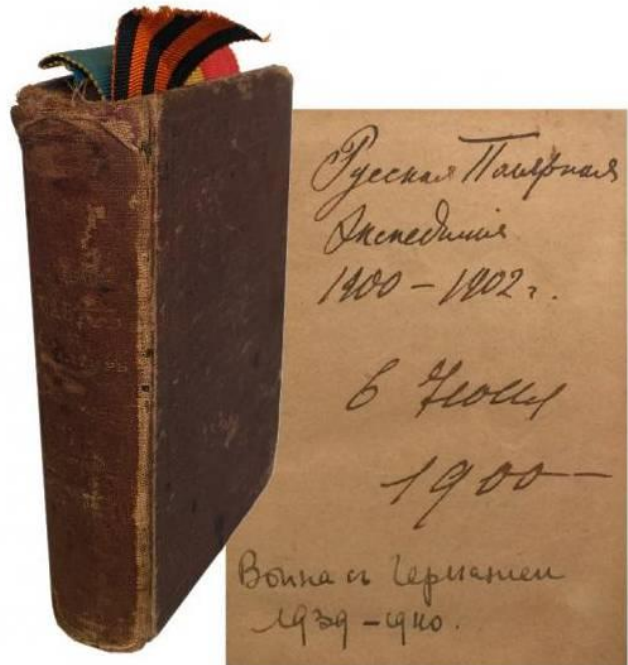 Русская Полярная
Экспедиция
1900 – 1902 г.
6 Июня
1900 –
Война съ Германией
1939 – 1940.